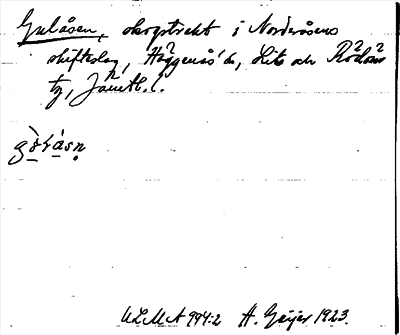 Gulåsen, skogstrakt i Norderåsens
skifteslag, Häggenås' s., Lits och Rödöns
tg, Jämtl. l.
ULMA 994:2 A. Geijer 1923.